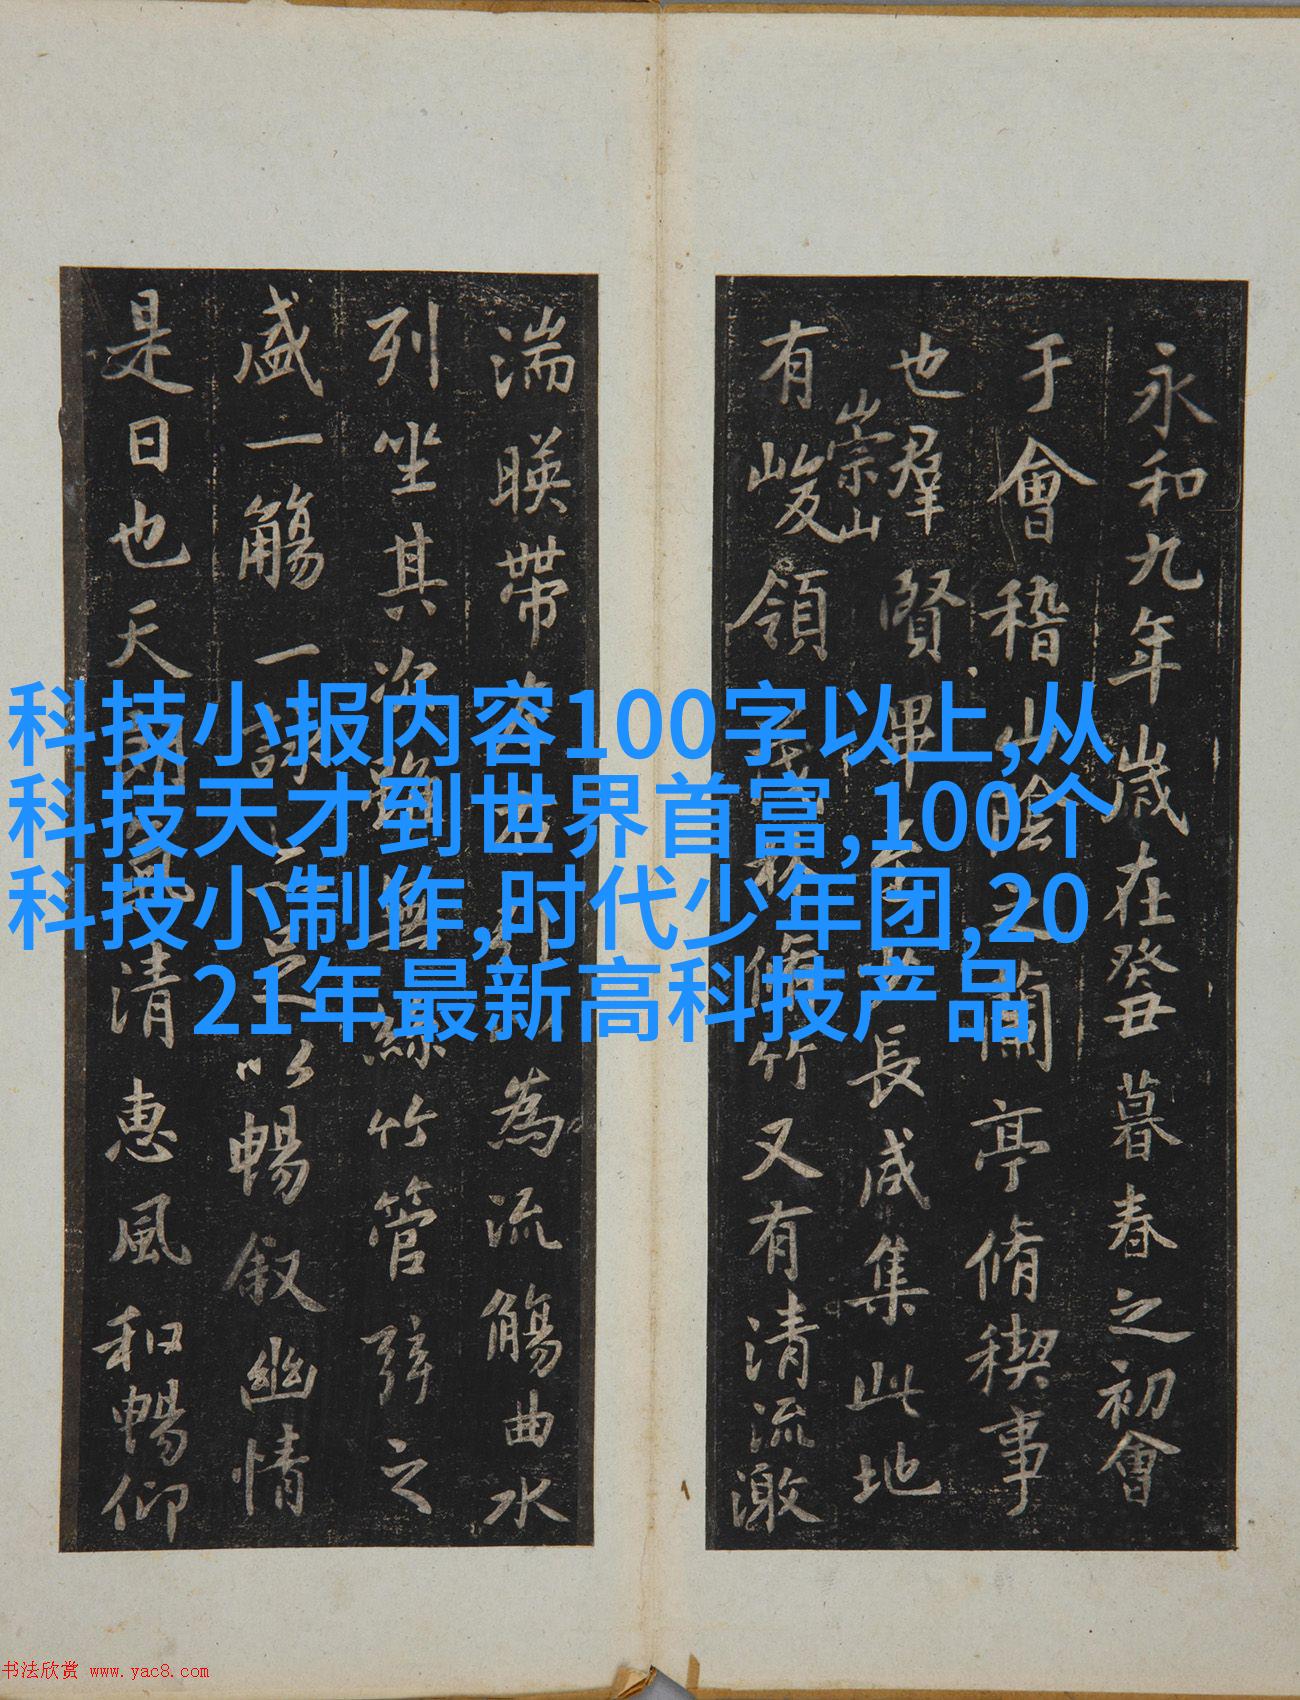 永和九年歲在癸丑暮春之初會
于會稽山陰之蘭亭脩禊事
也羣賢畢至少長咸集此地
崇山
有峻領茂林脩竹又有清流激
湍暎帶左右引以為流觴曲水
列坐其次雖無絲竹管弦之
盛一觴一詠亦足以暢叙幽情
是日也天朗氣清惠風和暢仰
科技小报内容100字以上,从
科技天才到世界首富,100个
科技小制作,时代少年团,20
21年最新高科技产品
书法欣赏 www.yac8.com